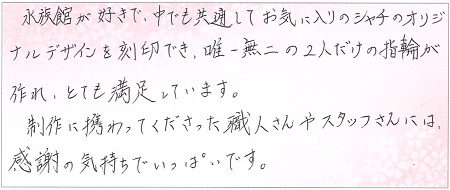 水族館が好きで、中でも共通してお気に入りのシャチのオリジ
ナルデザインを刻印でき、唯一無二の2人だけの指輪が
作れ、とても満足しています。
制作に携わってくださった職人さんやスタッフさんには、
感謝の気持ちでいっぱいです。